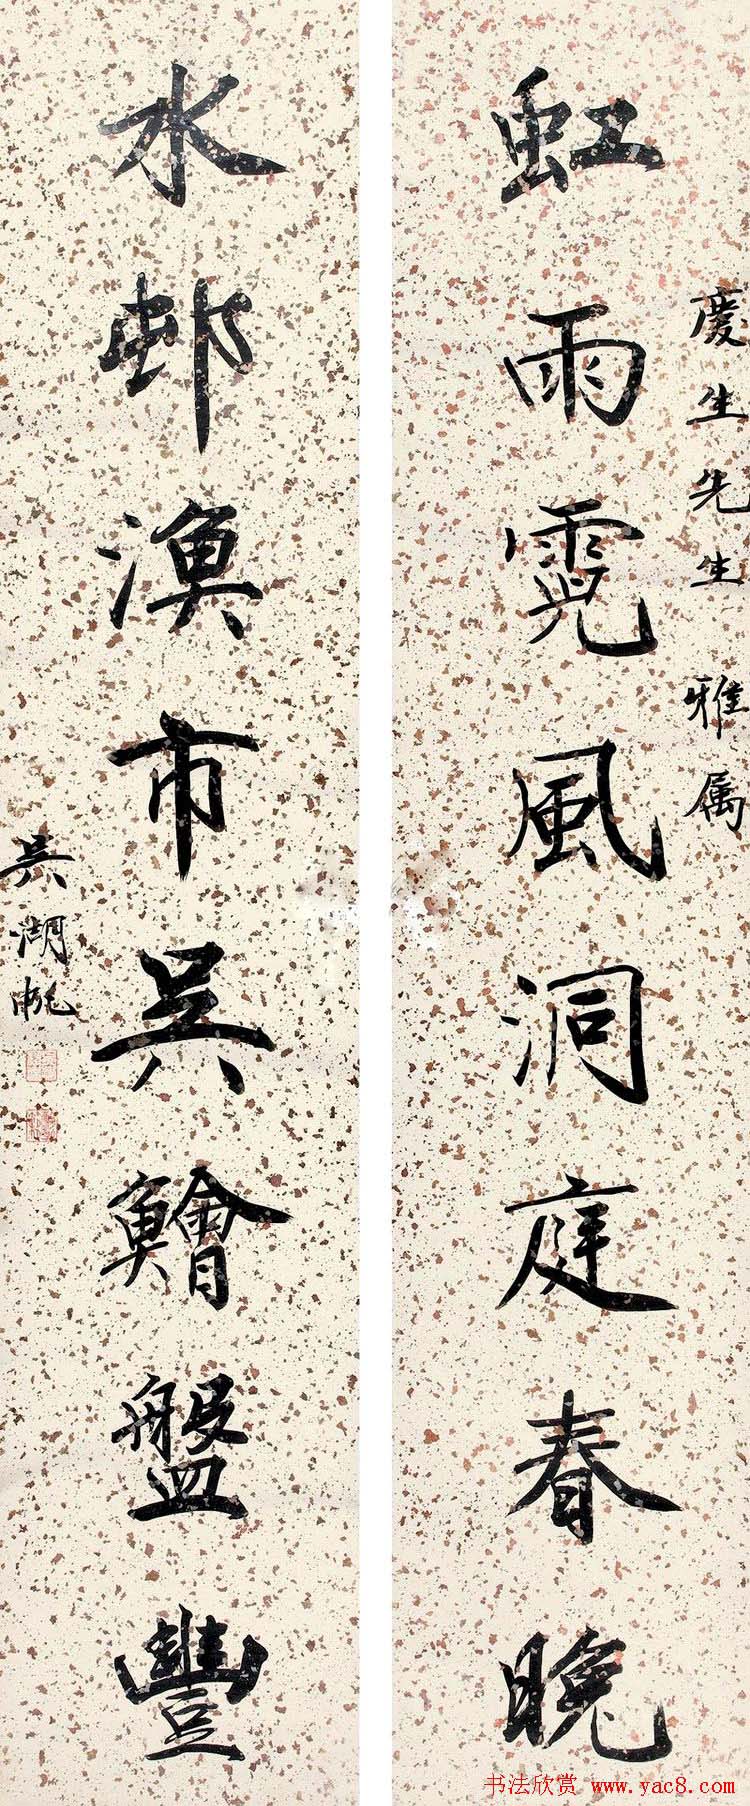 慶生先生 雅属
虹雨霓風洞庭春晚
水邨漁市吳鱠盤豐
吳湖帆
书法欣赏 www.yac8.com